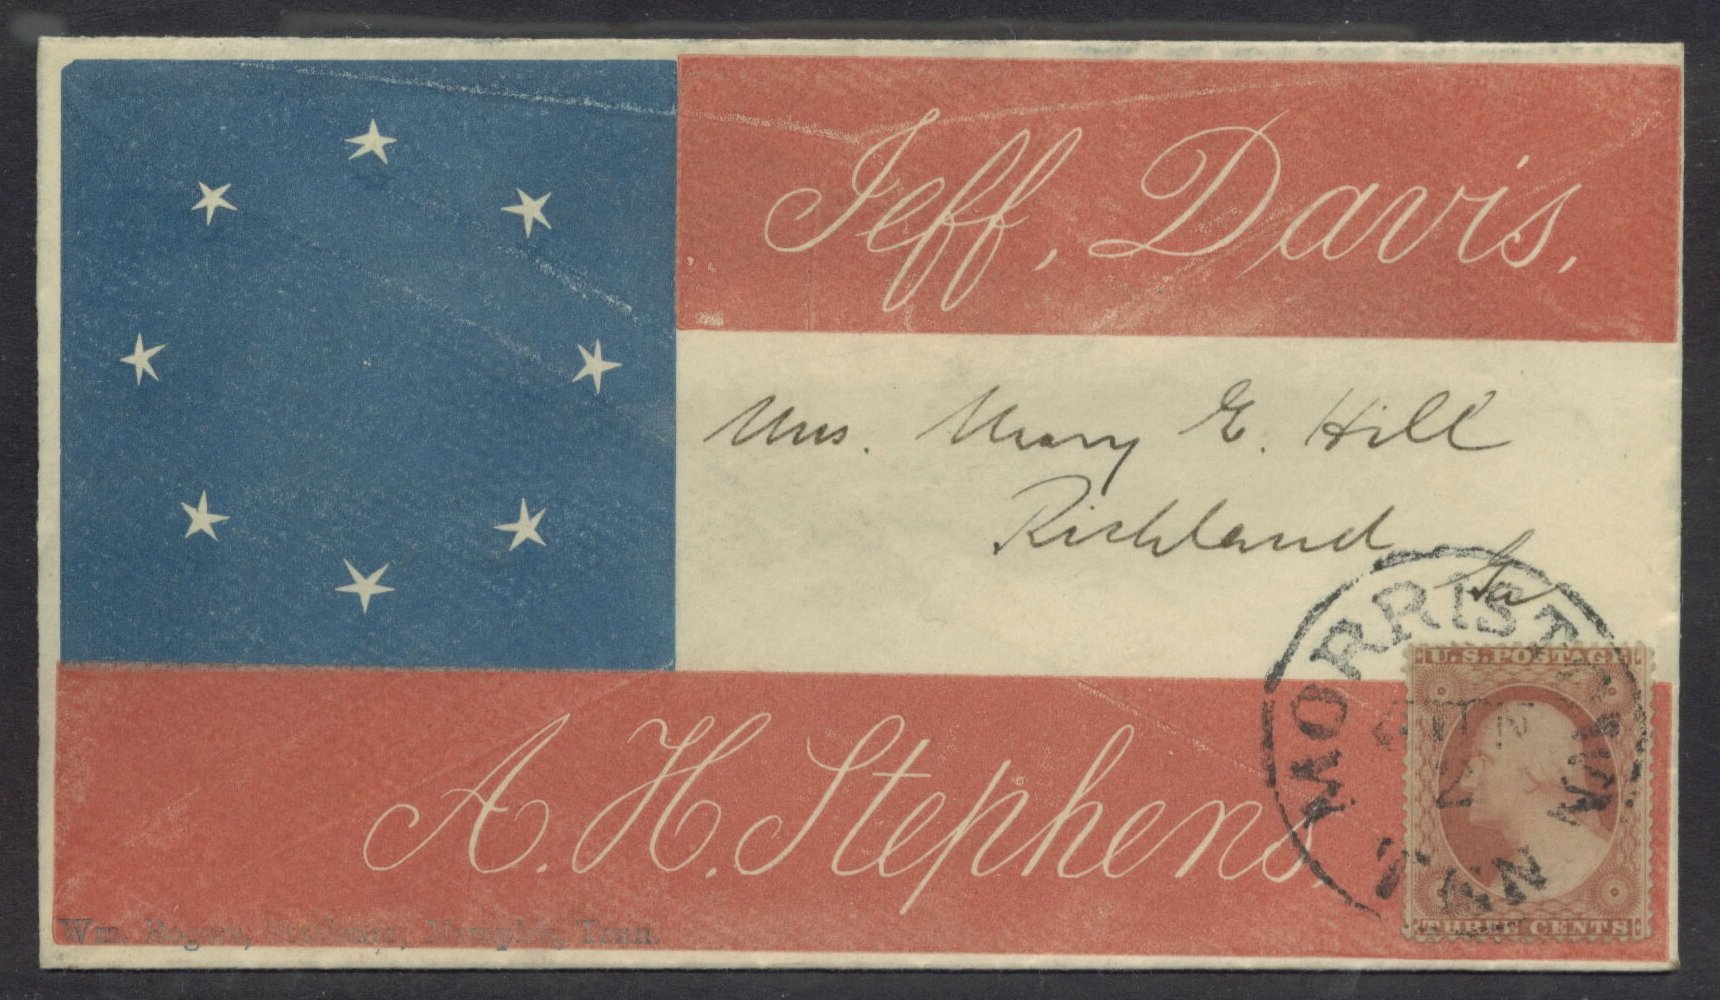 Jeff, Davis,
Mrs. Mary E. Hill
Richland
Ga
A. H. Stephens,
MORRISTOWN
JUN
TEN
U.S. POSTAGE
THREE CENTS
Wm. Rogers, Stationer, Memphis, Tenn.